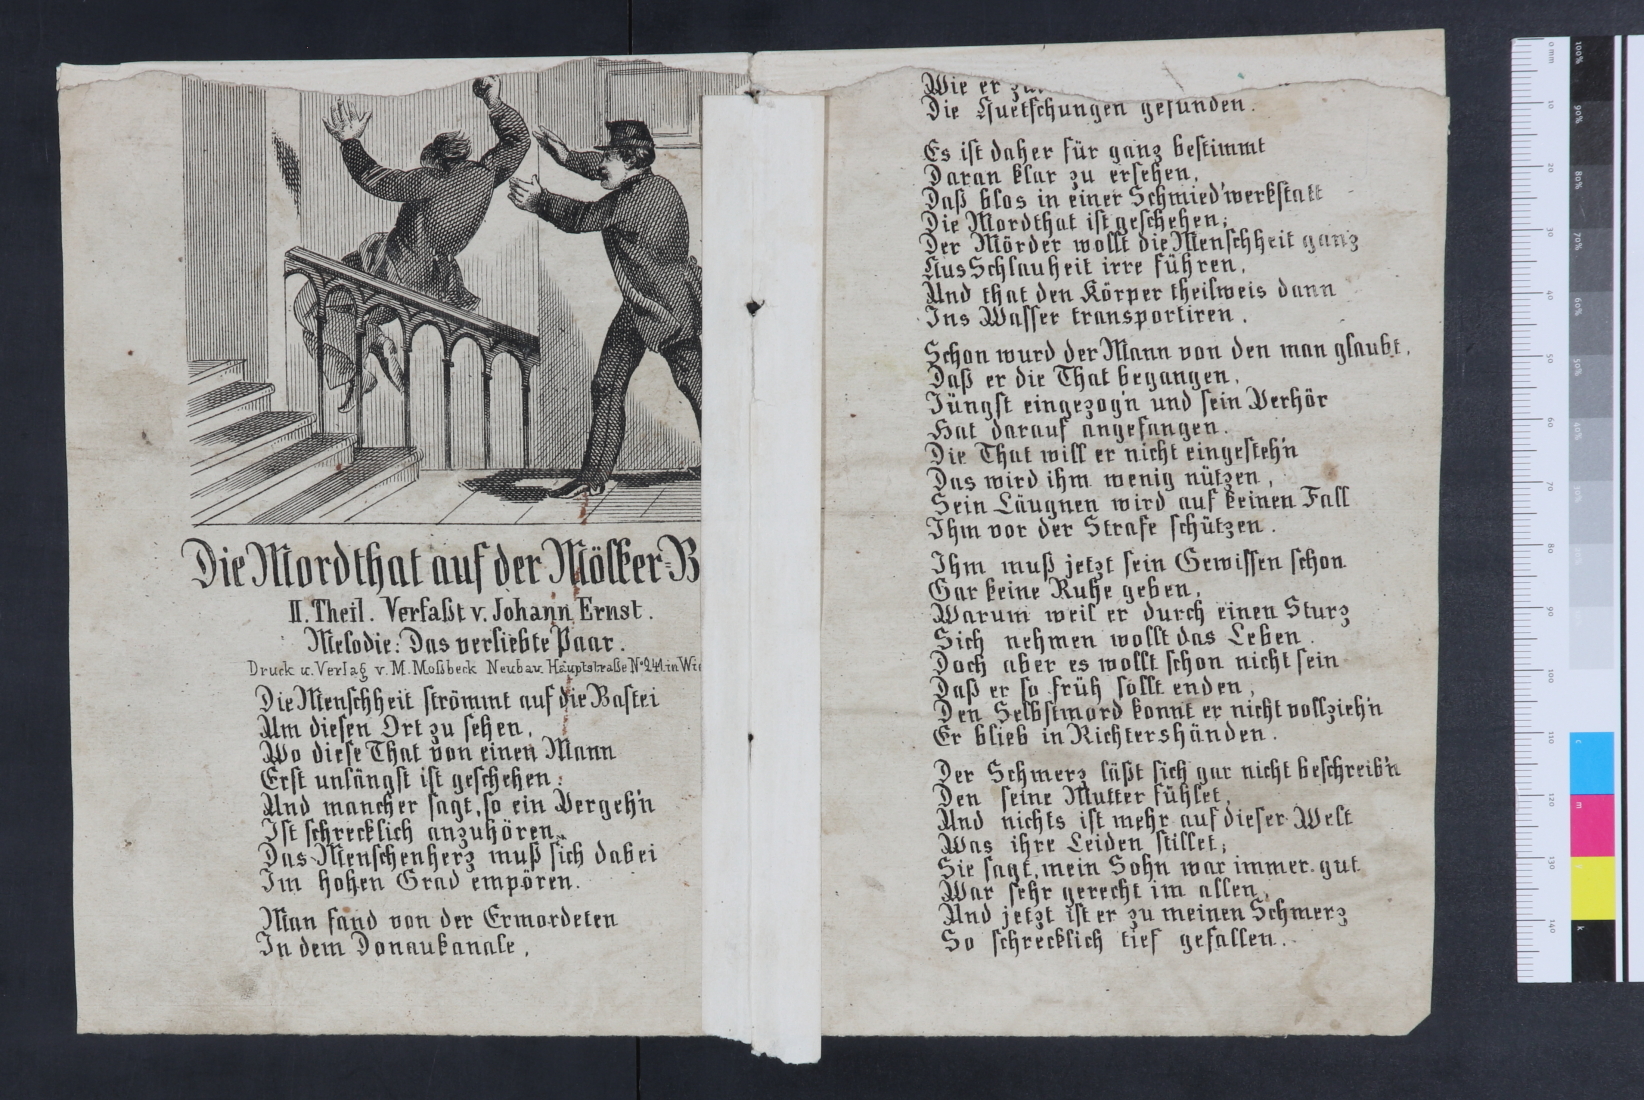 Die Mordthat auf der Mölker-B
II. Theil. Verfaßt v. Johann Ernst.
Melodie: Das verliebte Paar.
Druck u. Verlag v. M. Moßbeck Neubau Hauptstraße No 241. in Wi
Die Menschheit strömmt auf die Bastei
Um diesen Ort zu sehen,
Wo diese That von einen Mann
Erst unlängst ist geschehen:
Und mancher sagt, so ein Vergeh'n
Ist schrecklich anzuhören,
Das Menschenherz muß sich dabei
Im hohen Grad empören.
Man fand von der Ermordeten
In dem Donaukanale,
Wie er
Die Quetschungen gefunden.
Es ist daher für ganz bestimmt
Daran klar zu ersehen,
Daß blos in einer Schmied'werkstatt
Die Mordthat ist geschehen;
Der Mörder wollt die Menschheit ganz
Aus Schlauheit irre führen,
Und that den Körper theilweis dann
Ins Wasser transportiren.
Schon wurd der Mann von den man glaubt,
Daß er die That begangen,
Jüngst eingezog'n und sein Verhör
Hat darauf angefangen.
Die That will er nicht eingesteh'n
Das wird ihm wenig nützen,
Sein Läugnen wird auf keinen Fall
Ihm vor der Strafe schützen.
Ihm muß jetzt sein Gewissen schon
Gar keine Ruhe geben,
Warum weil er durch einen Sturz
Sich nehmen wollt das Leben.
Doch aber es wollt schon nicht sein
Daß er so früh sollt enden,
Den Selbstmord konnt er nicht vollzieh'n
Er blieb in Richtershänden.
Der Schmerz läßt sich gar nicht beschreib'n
Den seine Mutter fühlet,
Und nichts ist mehr auf dieser Welt
Was ihre Leiden stillet;
Sie sagt, mein Sohn war immer gut
War sehr gerecht im allen,
Und jetzt ist er zu meinen Schmerz
So schrecklich tief gefallen.